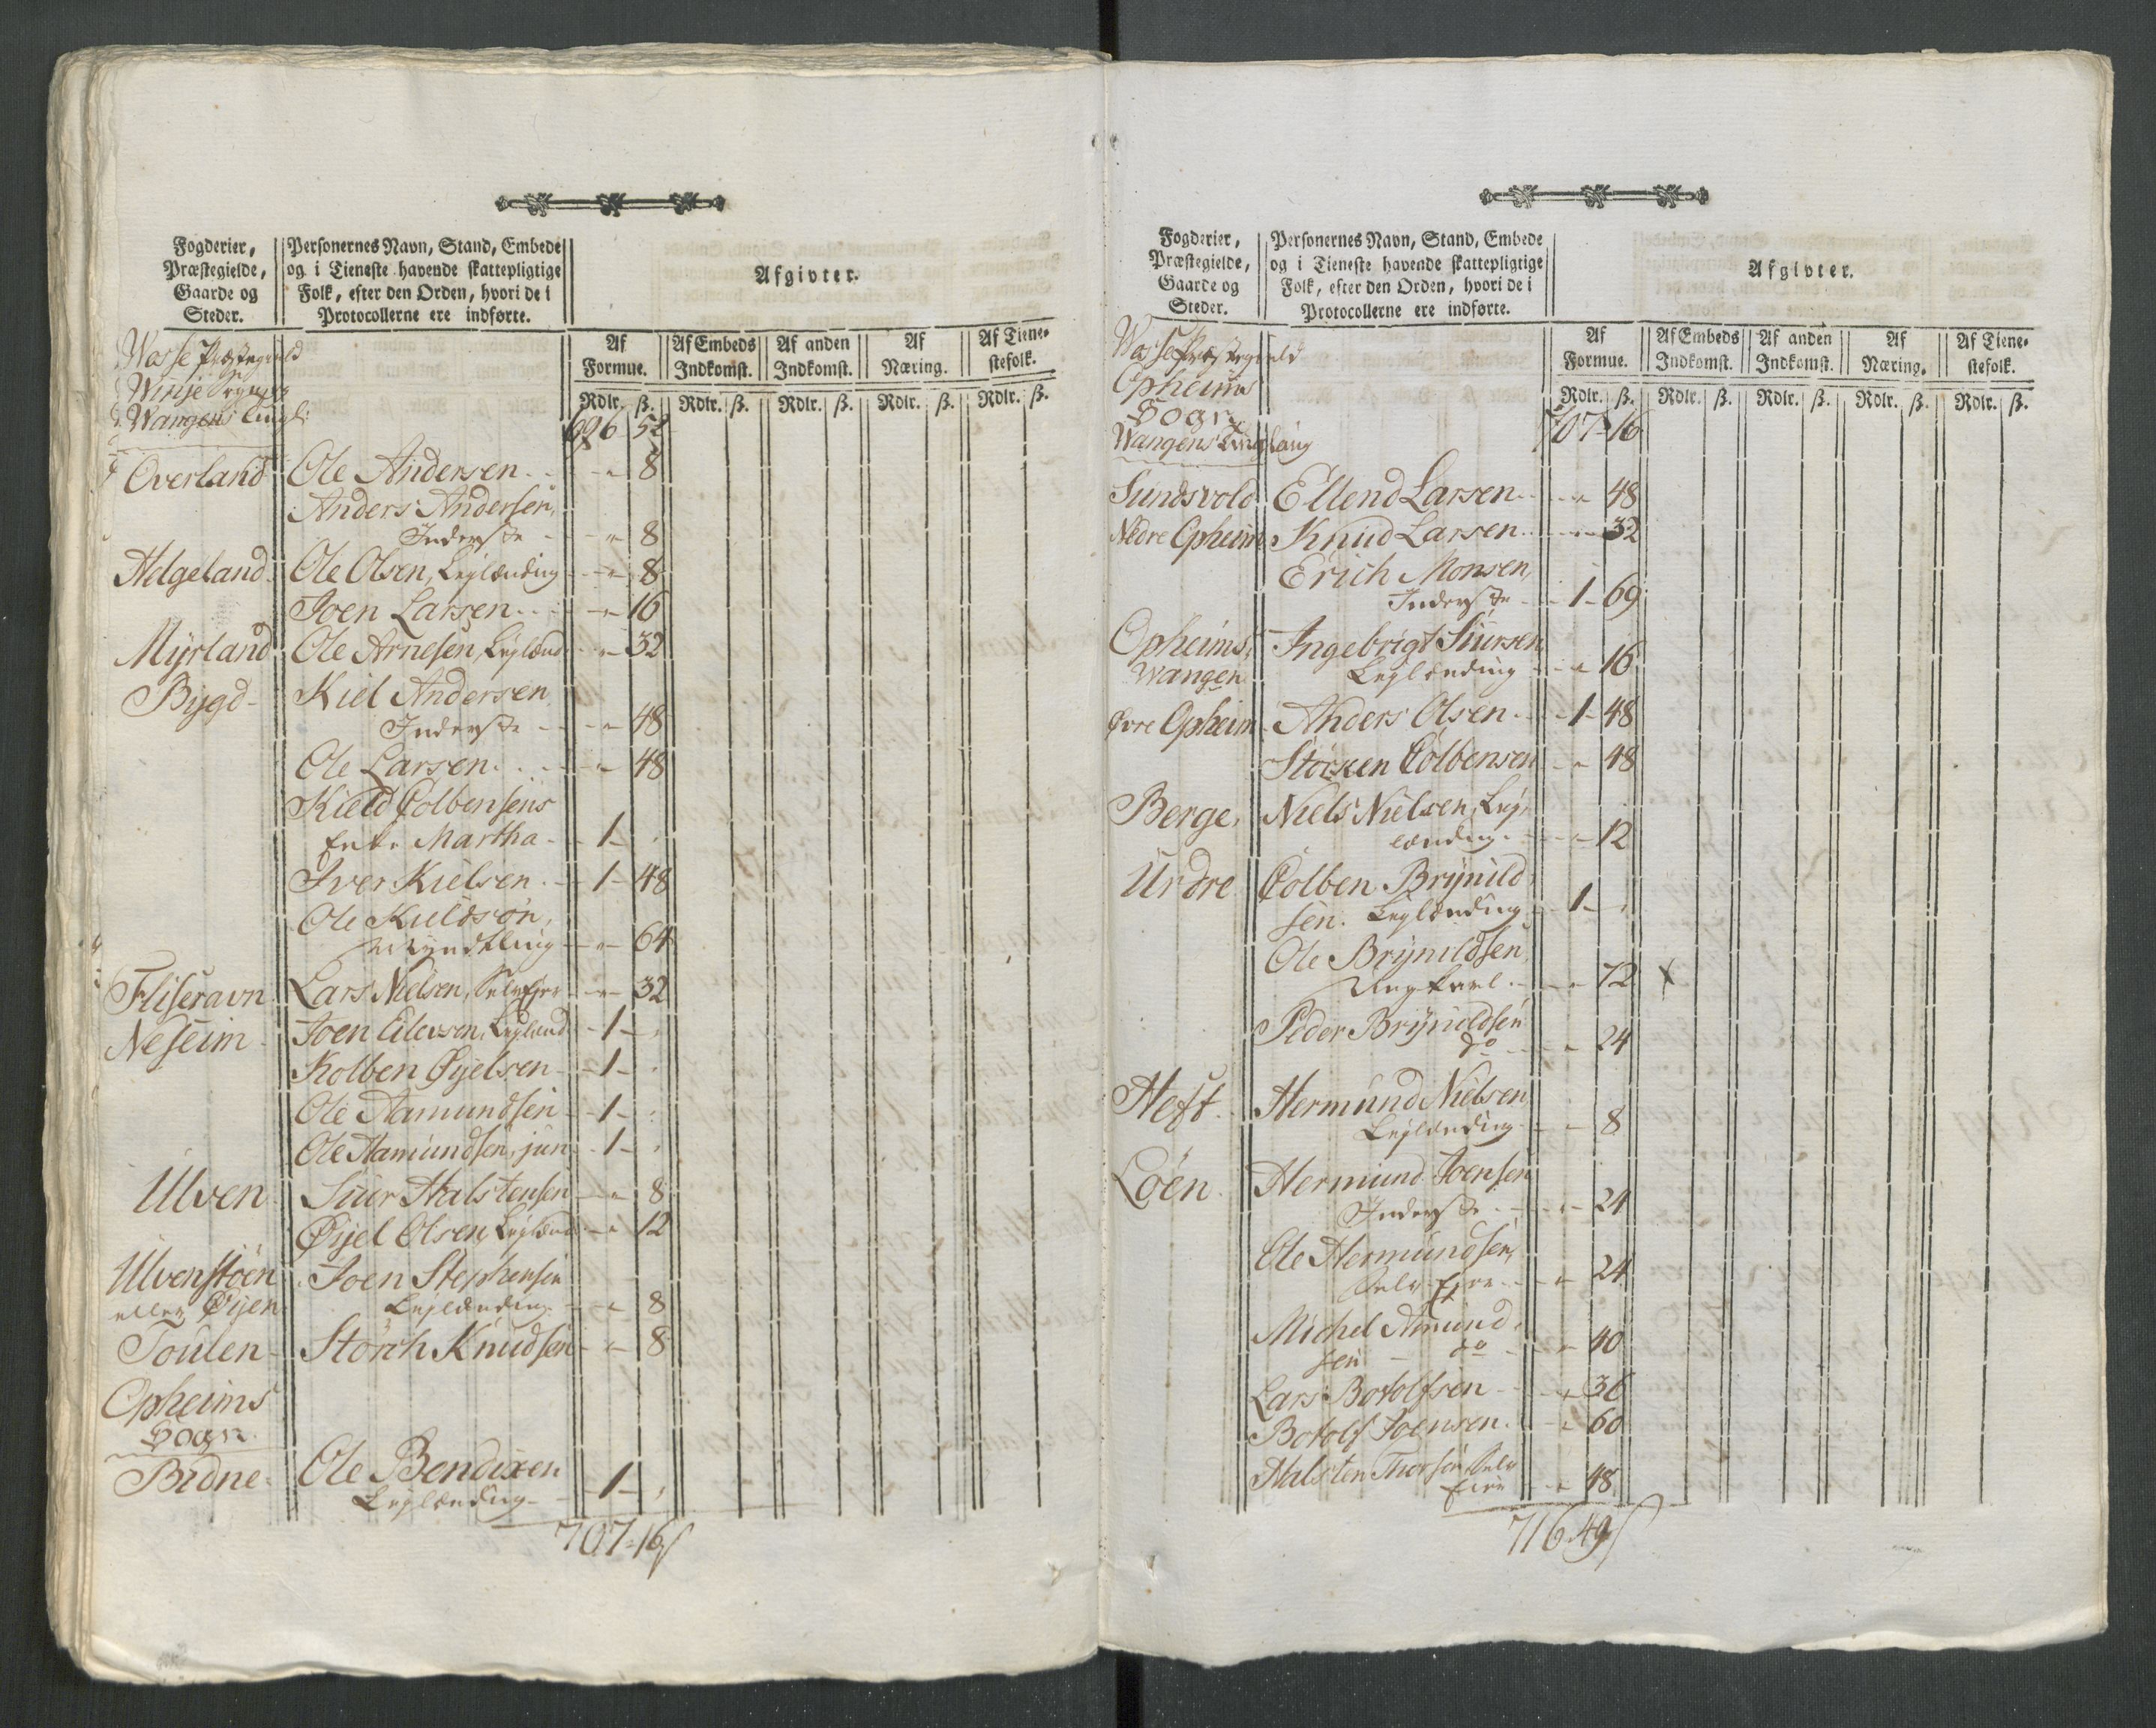 Fogderier, Præstegielde, Gaarde og Steder.
Personernes Navn, Stand, Embede og i Tieneste havende skattepligtige Folk, efter den Orden, hvori de i Protocollerne ere indførte.
Afgivter.
Af Formue. Af Embeds Indkomst. Af anden Indkomst. Af Næring. Af Tienestefolk.
Rdlr. ß. Rdlr. ß. Rdlr. ß. Rdlr. ß. Rdlr. ß.
Wosse Præstegield
Winje Sogn
Wangens Tingl:
696 52
Overland Ole Andersen - 8
Anders Andersen,
Inderste - 8
Helgeland Ole Olsen, Leylænding - 8
Joen Larsen - 16
Myrland Ole Arnesen, Leylænd - 32
Bygd Kiel Andersen
Inderste - 48
Ole Larsen - 48
Kield Colbensens
Enke Martha - 1 -
Iver Kielsen - 1 - 48
Ole Kieldsøn,
Myndtling - 64
Fliseravn Lars Nielsen, Selvejer - 32
Neseim Joen Eilevsen, Leylænd - 1 -
Kolben Øyelsen - 1 -
Ole Aamundsen - 1 -
Ole Aamundsen, jun - 1 -
Ulven Siur Halstensen - 8
Øyel Olsen, Leylænd - 12
Ulvenstøen Joen Stephensen
eller Øyen Leylænding - 8
Toulen Storch Knudsen - 8
Opheims
Sogn
Bidne Ole Bendixen
Leylænding - 1 -
707 - 16 ß
Fogderier, Præstegielde, Gaarde og Steder.
Personernes Navn, Stand, Embede og i Tieneste havende skattepligtige Folk, efter den Orden, hvori de i Protocollerne ere indførte.
Afgivter.
Af Formue. Af Embeds Indkomst. Af anden Indkomst. Af Næring. Af Tienestefolk.
Rdlr. ß. Rdlr. ß. Rdlr. ß. Rdlr. ß. Rdlr. ß.
Wosse Præstegield
Opheims
Sogn
Wangens Tinglaug
707 - 16
Sundsvold Ellend Larsen - 48
Nedre Opheim Knud Larsen - 32
Erich Monsen,
Inderste - 1 - 69
Opheims Ingebrigt Siursen
Wangen Leylænding - 16
Øvre Opheim Anders Olsen - 1 - 48
Storken Colbensen - 48
Berge, Niels Nielsen, Ley
lænding - 12
Urdre Colben Brynild
sen. Leylænding - 1 -
Ole Brynildsen
Ungkarl - 72 x
Peder Brynildsen
do - 24
Heft Hermund Nielsen
Leylænding - 8
Løen Hermund Joensen
Inderste - 24
Ole Hermundsen,
Selv Ejer - 24
Michel Amund
sen - do - 40
Lars Botolfsen - 36
Botolf Joensen - 60
Halsten Thorsen, Selv
Eier - 48
716 49 ß